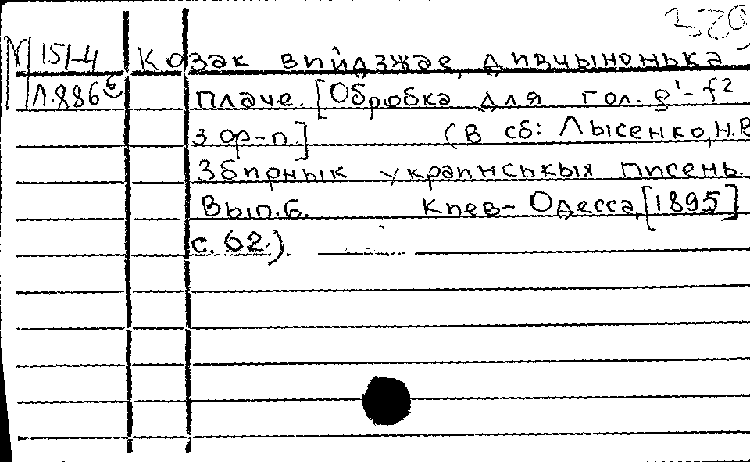 N 151-4 Козак виидзжае, дивчынонька
Л.886 плаче. [Обробка для гол. g'-f2
з ф-п.] (В сб: Лысенко, Н.В
Збирнык украинськых писень.
Вып.6. Киев-Одесса, [1895]
с. 62.).